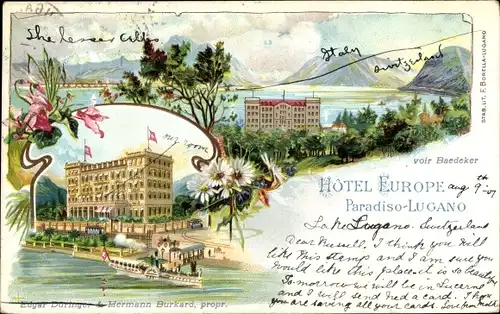 The lesser Alps
Italy
Switzerland
my room
STAB. LIT. F. BORELLA-LUGANO
voir Baedeker
HÔTEL EUROPE
Paradiso-LUGANO
Aug 9th -07
Lake Lugano. Switzerland
Dear Russell. I think you will
like this stamp and I am sure you
would like this place it is so beauty
Tomorrow we will be in Lucerne
and I will send Ned a card. I hope
you are saving all your cards. Love from
Edgar Düringer & Hermann Burkard, propr.